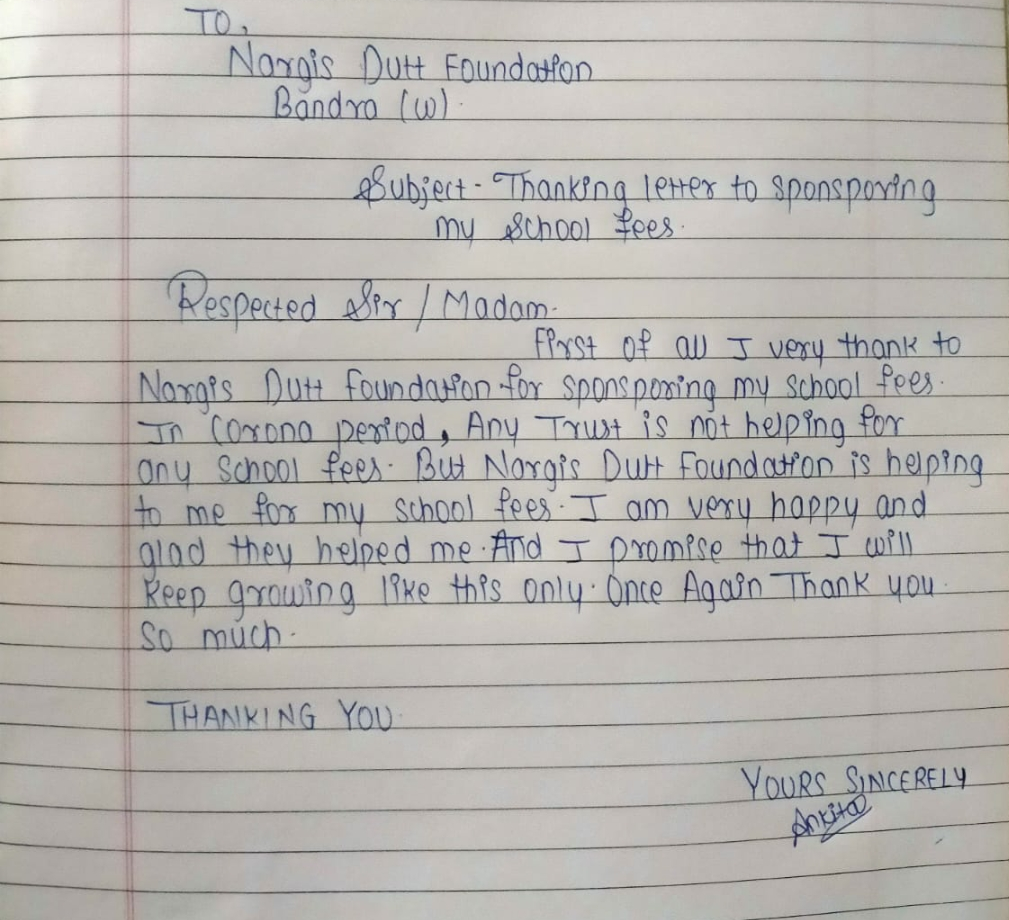 TO,
Nargis Dutt Foundation
Bandra (W).
Subject - Thanking letter to sponsporing
my school fees.
Respected Sir / Madam.
First of all I very thank to
Nargis Dutt foundation for sponsporing my school fees.
In Corona period, Any Trust is not helping for
any school fees. But Nargis Dutt Foundation is helping
to me for my school fees. I am very happy and
glad they helped me. And I promise that I will
keep growing like this only. Once Again Thank you.
So much.
THANKING YOU.
YOURS SINCERELY
Ankita